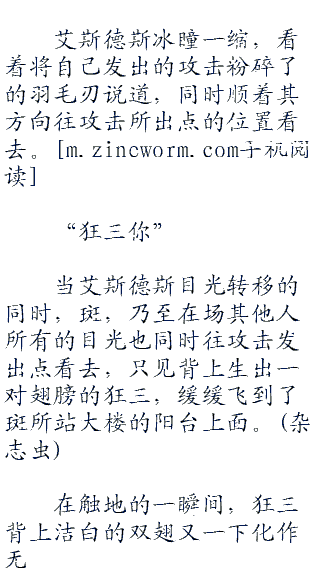 艾斯德斯冰瞳一缩，看
着将自己发出的攻击粉碎了
的羽毛刃说道，同时顺着其
方向往攻击所出点的位置看
去。[m.zincworm.com手机阅
读]
“狂三你”
当艾斯德斯目光转移的
同时，斑，乃至在场其他人
所有的目光也同时往攻击发
出点看去，只见背上生出一
对翅膀的狂三，缓缓飞到了
斑所站大楼的阳台上面。(杂
志虫)
在触地的一瞬间，狂三
背上洁白的双翅又一下化作
无